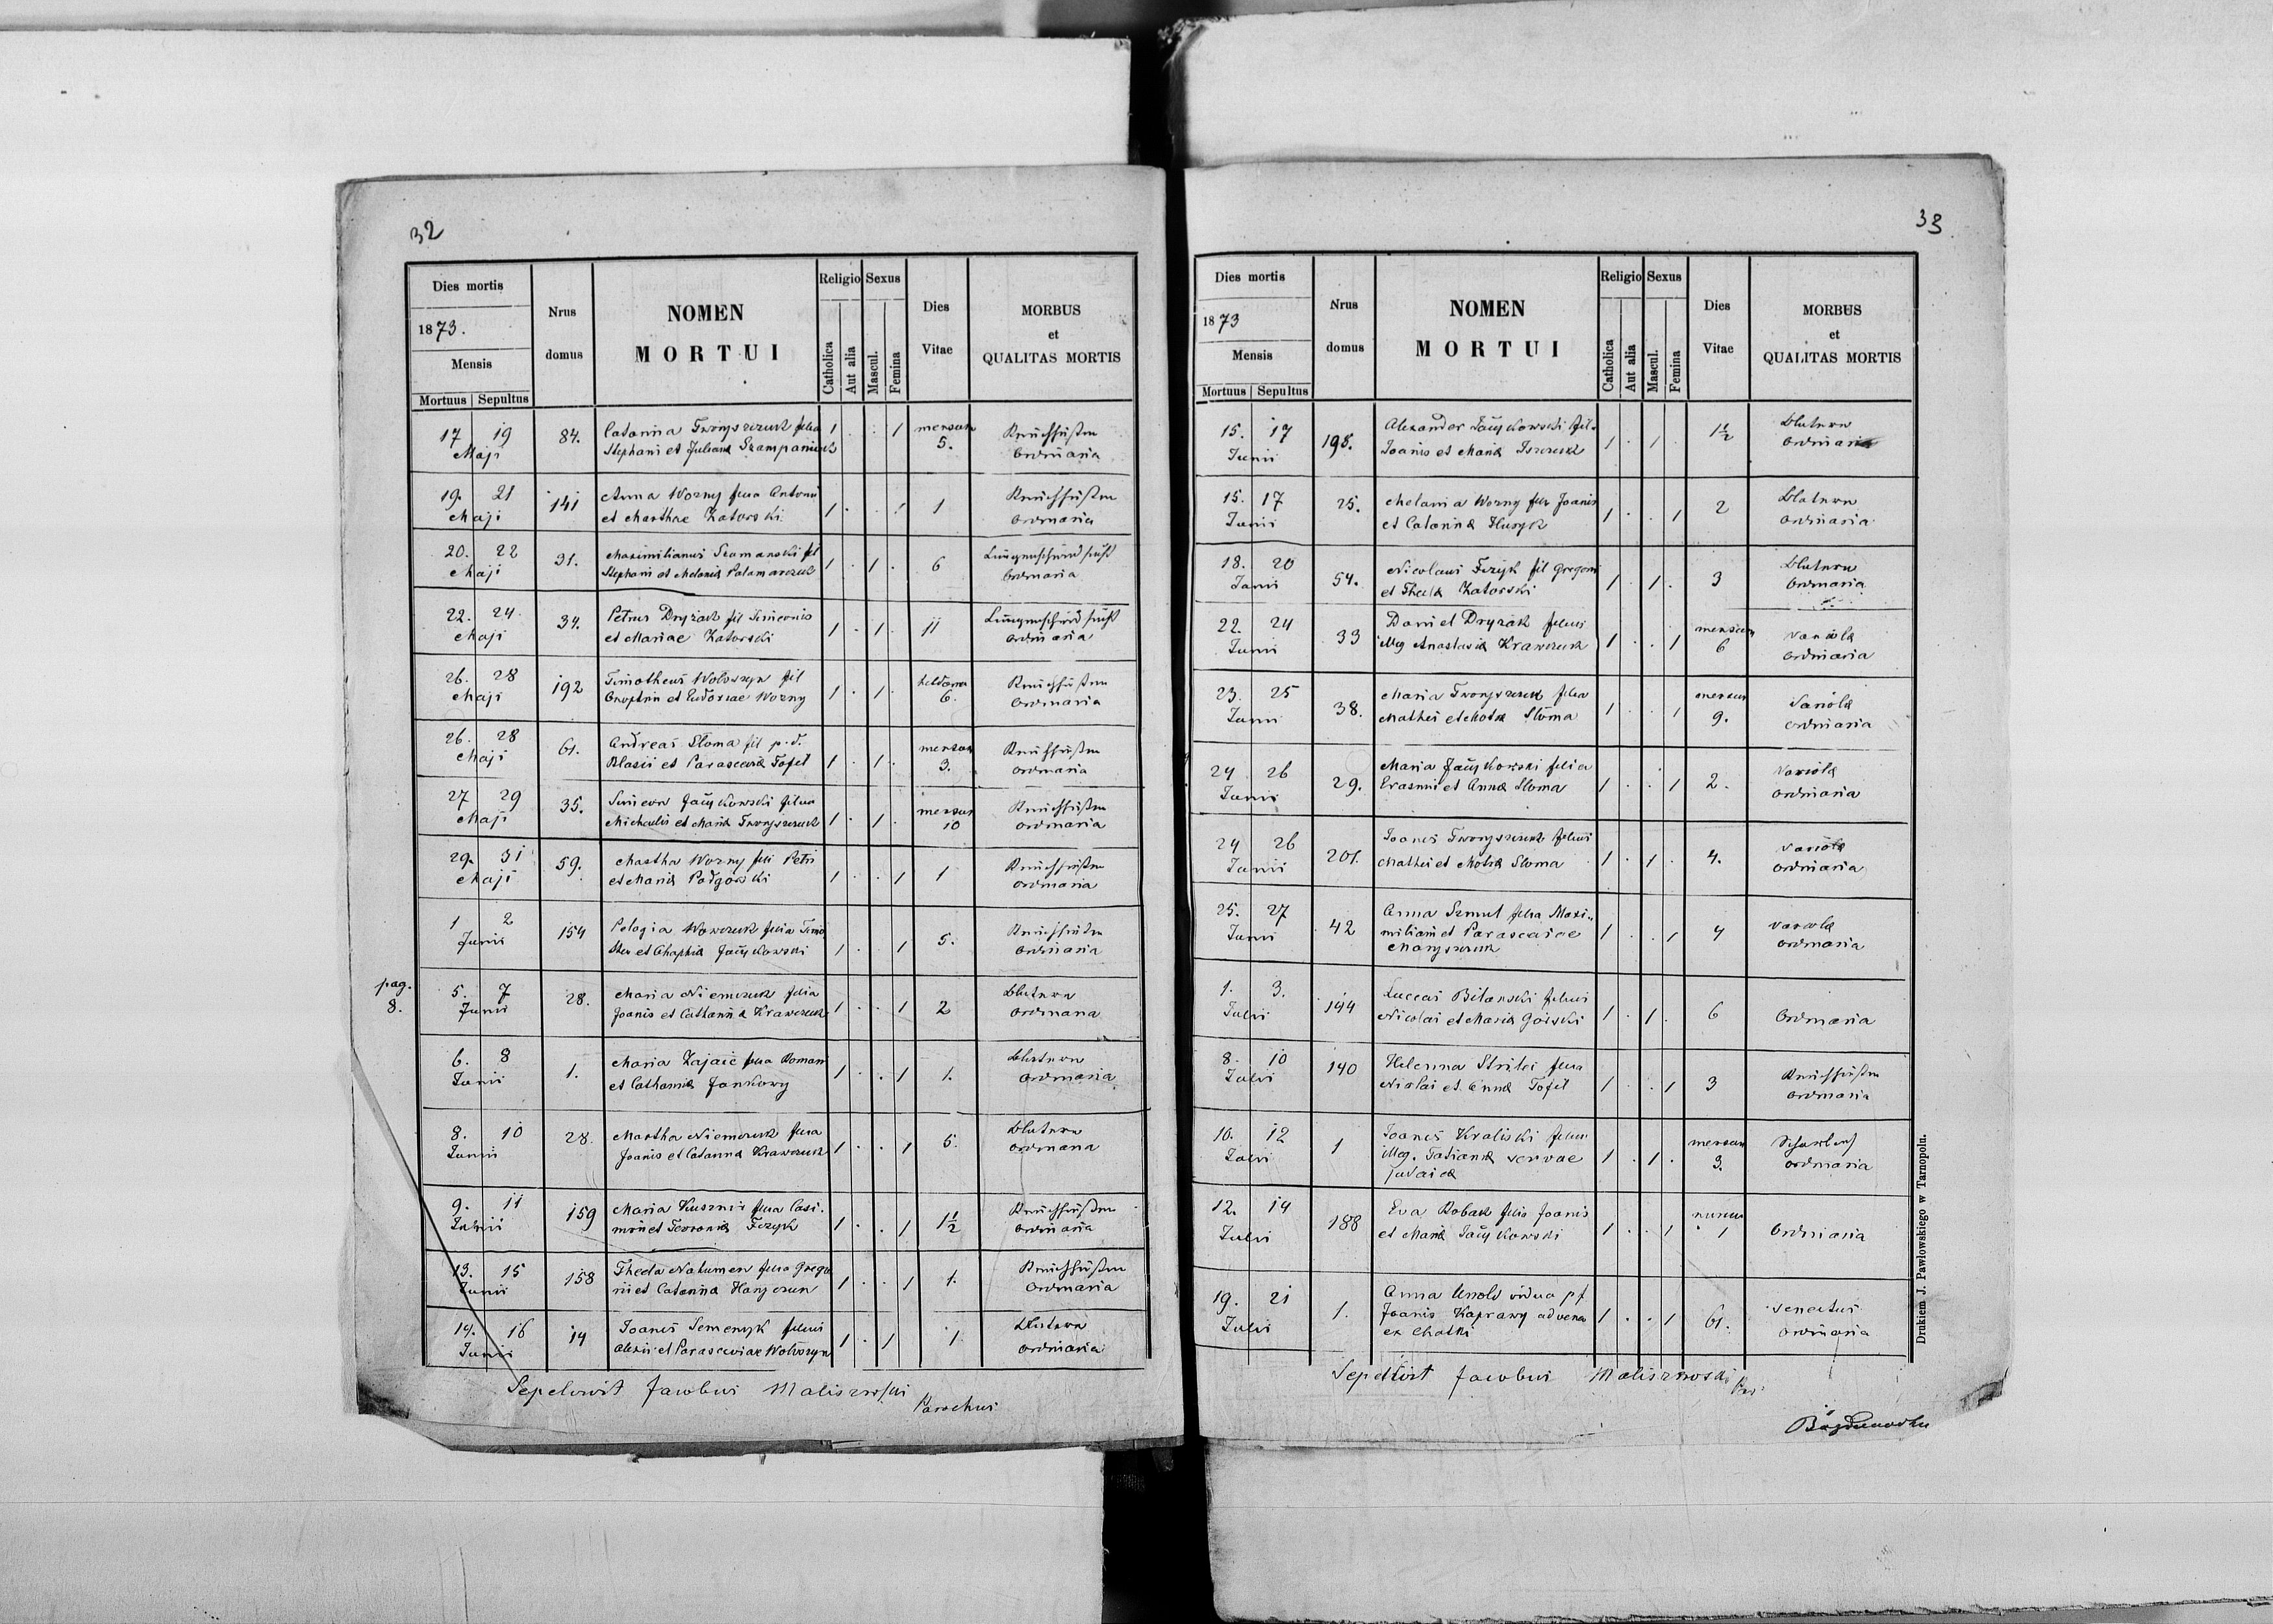 32
Dies mortis
Nrus
domus
NOMEN
MORTUI
Religio
Sexus
Dies
Vitae
MORBUS
et
QUALITAS MORTIS
1873.
Mensis
Mortuus
Sepultus
Catholica
Aut alia
Mascul.
Femina
17 19 84. Catarina Tworyszczuk filia 1 . . 1 mensum
Maji Stephani et Juliana Szampaniuk 5. Keuchhusten
ordinaria
19. 21 141 Anna Worny filia Antonii Keuchhusten
Maji et Marthae Zatorski 1 . . 1 1 ordinaria
20. 22 31. Maximilianus Szomanski fil
Maji Stephani et Melania Palamarczuk 1 . 1 . 6
ordinaria
22. 24. 34. Petrus Dryzak fil Simeonis
Maji et Mariae Zatorski 1 . 1 . 11
ordinaria
26. 28 192 Timotheus Woloszyn fil Keuchhusten
Maji Onuphrii et Eudoxiae Worny 1 . 1 . 6. ordinaria
26. 28 61. Andreas Sloma fil p.d. mensum Keuchhusten
Maji Blasii et Parascevia Tofel 1 . 1 . 3. ordinaria
27 29 35. Simeon Jacykowski filius mensum Keuchhusten
Maji Michaelis et Maria Tworyszczuk 1 . 1 . 10 ordinaria
29. 31 59. Martha Worny fili Petri Keuchhusten
Maji et Maria Podgorski 1 . . 1 1 ordinaria
1 2 154 Pelagia Wowczuk filia Timo Keuchhusten
Junii thei et Chaphia Jacykowski 1 . . 1 5. ordinaria
pag.
8.
5. 7 28. Maria Niemczuk filia Blattern
Junii Joanis et Catharina Krawczuk 1 . . 1 2 ordinaria
6. 8 1. Maria Zajaic filia Romani Blattern
Junii et Catharina Jankowy 1 . . 1 1. ordinaria
8. 10 28. Martha Niemczuk filia Blattern
Junii Joanis et Catarina Krawczuk 1 . . 1 5. ordinaria
9. 11 159 Maria Kusznir filia Casi- Keuchhusten
Junii miri et Teoronia Fizyk 1 . . 1 1½ ordinaria
13. 15 158 Thecla Natumen filia Grego Keuchhusten
Junii rii et Catarina Hanczun 1 . . 1 1. ordinaria
14. 16 14 Joanes Semenyk filius Blattern
Junii Alexii et Parasceviae Woloszyn 1 . 1 1 ordinaria
Sepelivit Jacobus Maliszewski
Parochus
33
Dies mortis
Nrus
domus
NOMEN
MORTUI
Religio
Sexus
Dies
Vitae
MORBUS
et
QUALITAS MORTIS
1873
Mensis
Mortuus
Sepultus
Catholica
Aut alia
Mascul.
Femina
15. 17 198. Alexander Jacykowski fil. Blattern
Junii Joanis et Maria 1 . 1 . 1½ ordinaria
15. 17 25. Melania Worny filia Joanis Blattern
Junii et Catarina Husyk 1 . . 1 2 ordinaria
18. 20 54. Nicolaus Fizyk fil Gregorii Blattern
Junii et Thecla Zatorski 1 . 1 . 3 ordinaria
22. 24 33 Daniel Dryzak filius mensum variola
Junii illeg Anastasia Krawczuk 1 . . 1 6 ordinaria
23. 25 38. Maria Tworyszczuk filia mensum variola
Junii Mathei et Motra Sloma 1 . . 1 9. ordinaria
24 26 29. Maria Jacykowski filia variola
Junii Erasmi et Anna Sloma 1 . . 1 2. ordinaria
24 26 201. Joanes Tworyszczuk filius variola
Junii Mathei et Motra Sloma 1 . 1 . 4. ordinaria
25. 27 42 Anna Szmul filia Maxi- variola
Junii miliani et Parasceviae 1 . . 1 4 ordinaria
Maryszczuk
1. 3. 144 Luccas Bilanski filius
Julii Nicolai et Maria Gorski 1 . 1 . 6 ordinaria
8. 10 140 Helenna Strilci filia Keuchhusten
Julii Nicolai et Anna Tofel 1 . . 1 3 ordinaria
10. 12 1 Joanes Kraliski filius mensum
Julii illeg. Tatianna servae 1 . 1 . 3. ordinaria
judaica
12. 14 188 Eva Robak filia Joanis
Julii et Maria Jacykowski 1 . . 1 1 ordinaria
19. 21 1. Anna Unold vidua p f senectus
Julii Joanis Kaprawy advena 1 . . 1 61. ordinaria
ex
Sepelivit Jacobus Maliszewski Par.
Drukiem J. Pawłowskiego w Tarnopolu.